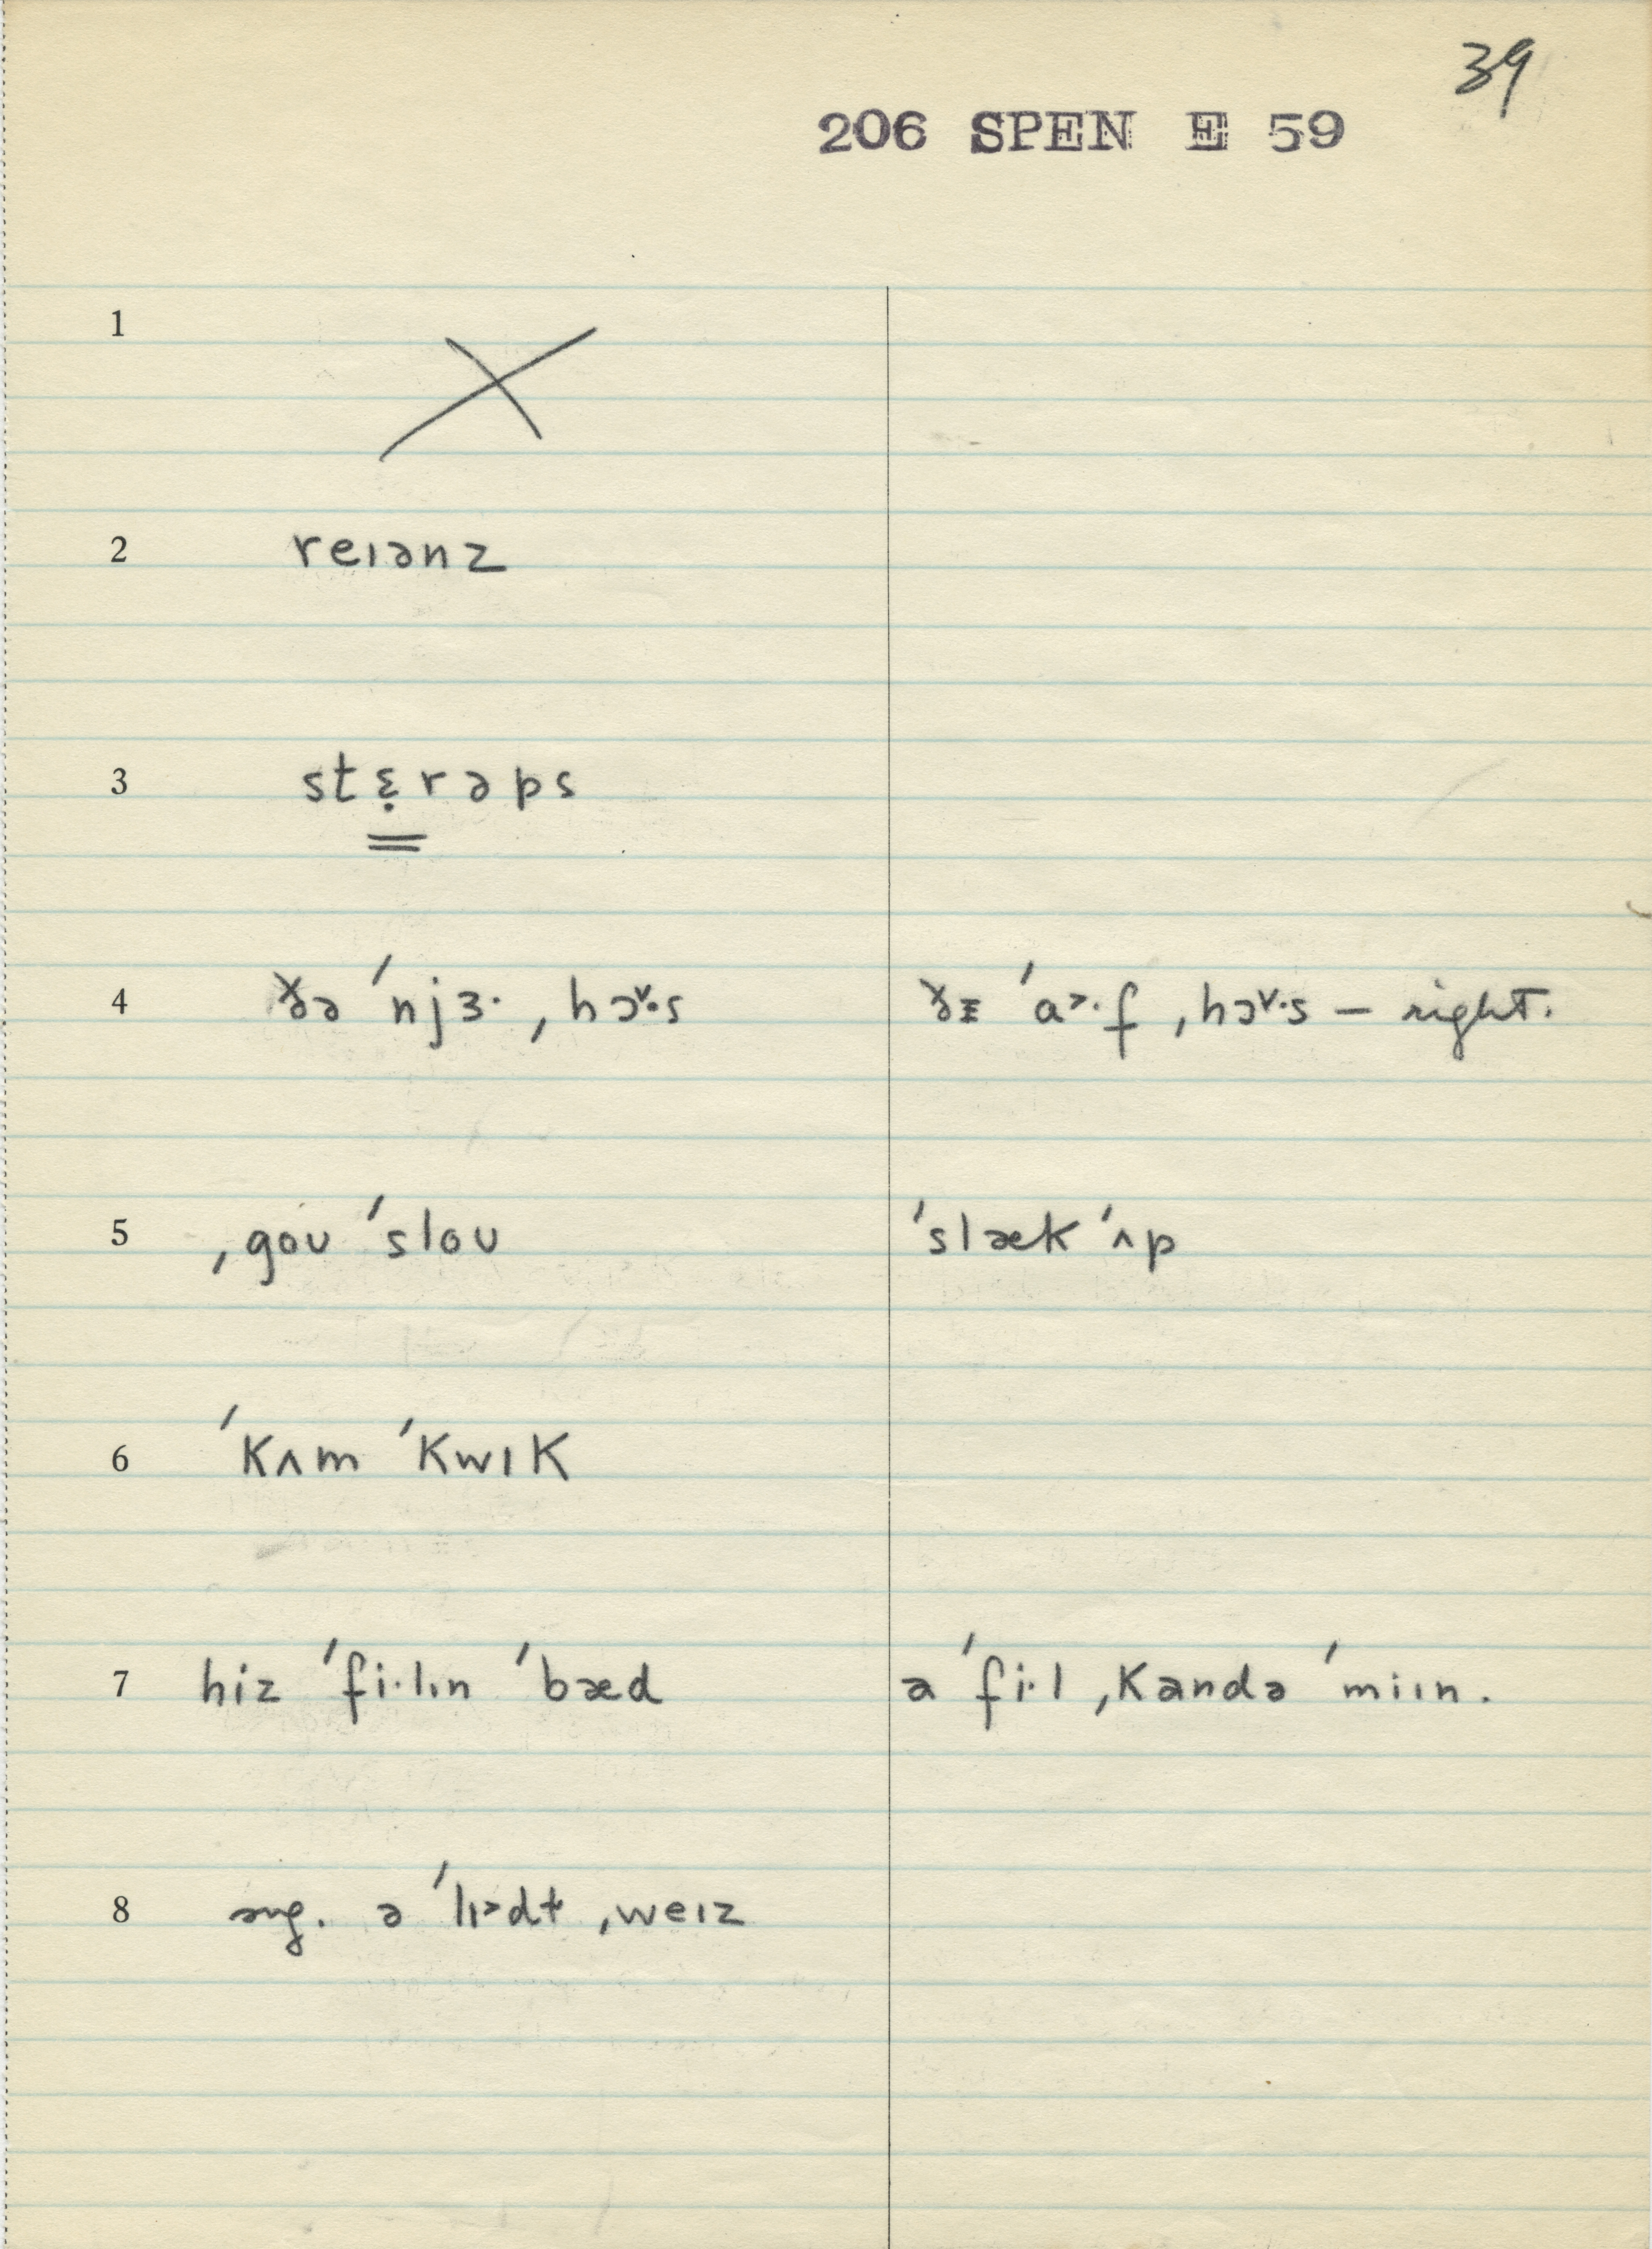 39
206 SPEN E 59
1
2 reɪənz
3 stɛ̣rəps
4 ðə ˈnjɜ· ˌhɔ˅·s ðɪ ˈa˃·f ˌhɔ˅·s – right.
5 ˌgoʊ ˈsloʊ ˈslæk ˈʌp
6 ˈkʌm ˈkwɪk
7 hiz ˈfi·lɪn ˈbæd a ˈfi·l ˌkandə ˈmiɪn.
8 ə ˈlɪ˃dɫ ˌweɪz